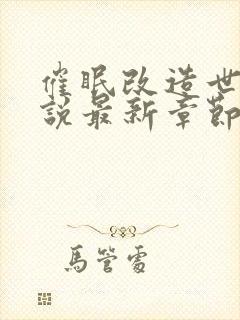 催眠改造世
說最新章節
馬管雷